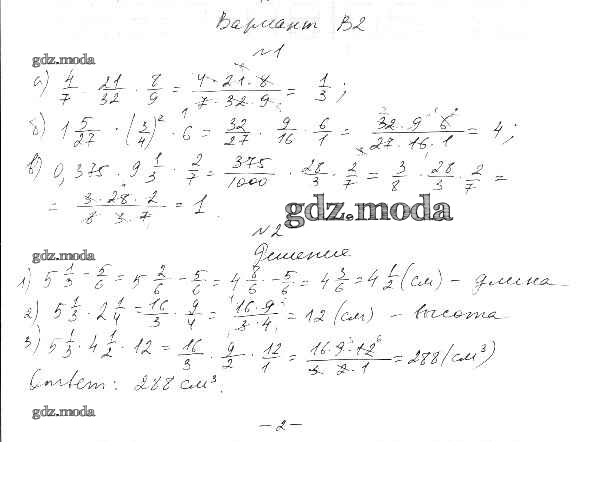 Вариант В2
№1
gdz.moda
а) 4/7 · 21/32 · 8/9 = 4·21·8/7·32·9 = 1/3;
б) 1 5/27 · (3/4)² · 6 = 32/27 · 9/16 · 6/1 = 32·9·6/27·16·1 = 4;
в) 0,375 · 9 1/3 · 2/7 = 375/1000 · 28/3 · 2/7 = 3/8 · 28/3 · 2/7 =
= 3·28·2/8·3·7 = 1.
gdz.moda
№2
gdz.moda
Решение
1) 5 1/3 - 5/6 = 5 2/6 - 5/6 = 4 8/6 - 5/6 = 4 3/6 = 4 1/2 (см) - длина
2) 5 1/3 · 2 1/4 = 16/3 · 9/4 = 16·9/3·4 = 12 (см) - высота
3) 5 1/3 · 4 1/2 · 12 = 16/3 · 9/2 · 12/1 = 16·9·12/3·2·1 = 288 (см³)
Ответ: 288 см³.
gdz.moda
- 2 -